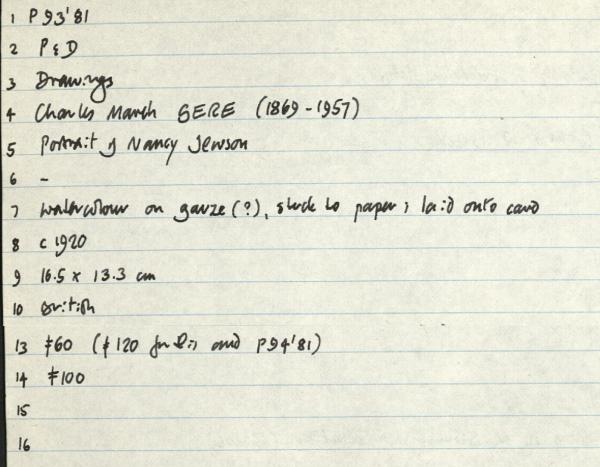 1 P93'81
2 P&D
3 Drawings
4 Charles March GERE (1869-1957)
5 Portrait of Nancy Jewson
6 -
7 Watercolour on gauze (?), stuck to paper; laid onto card
8 c 1920
9 16.5 x 13.3 cm
10 British
13 £60 (£120 for this and P94'81)
14 £100
15
16